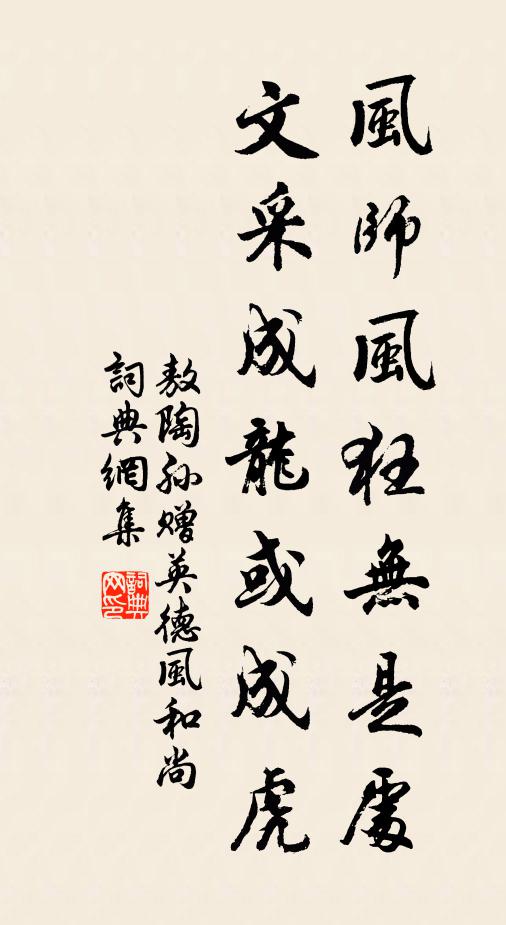 風師風狂無是處
文采成龍或成虎
敖陶孫贈英德風和尚
詞典網集
詞典網印